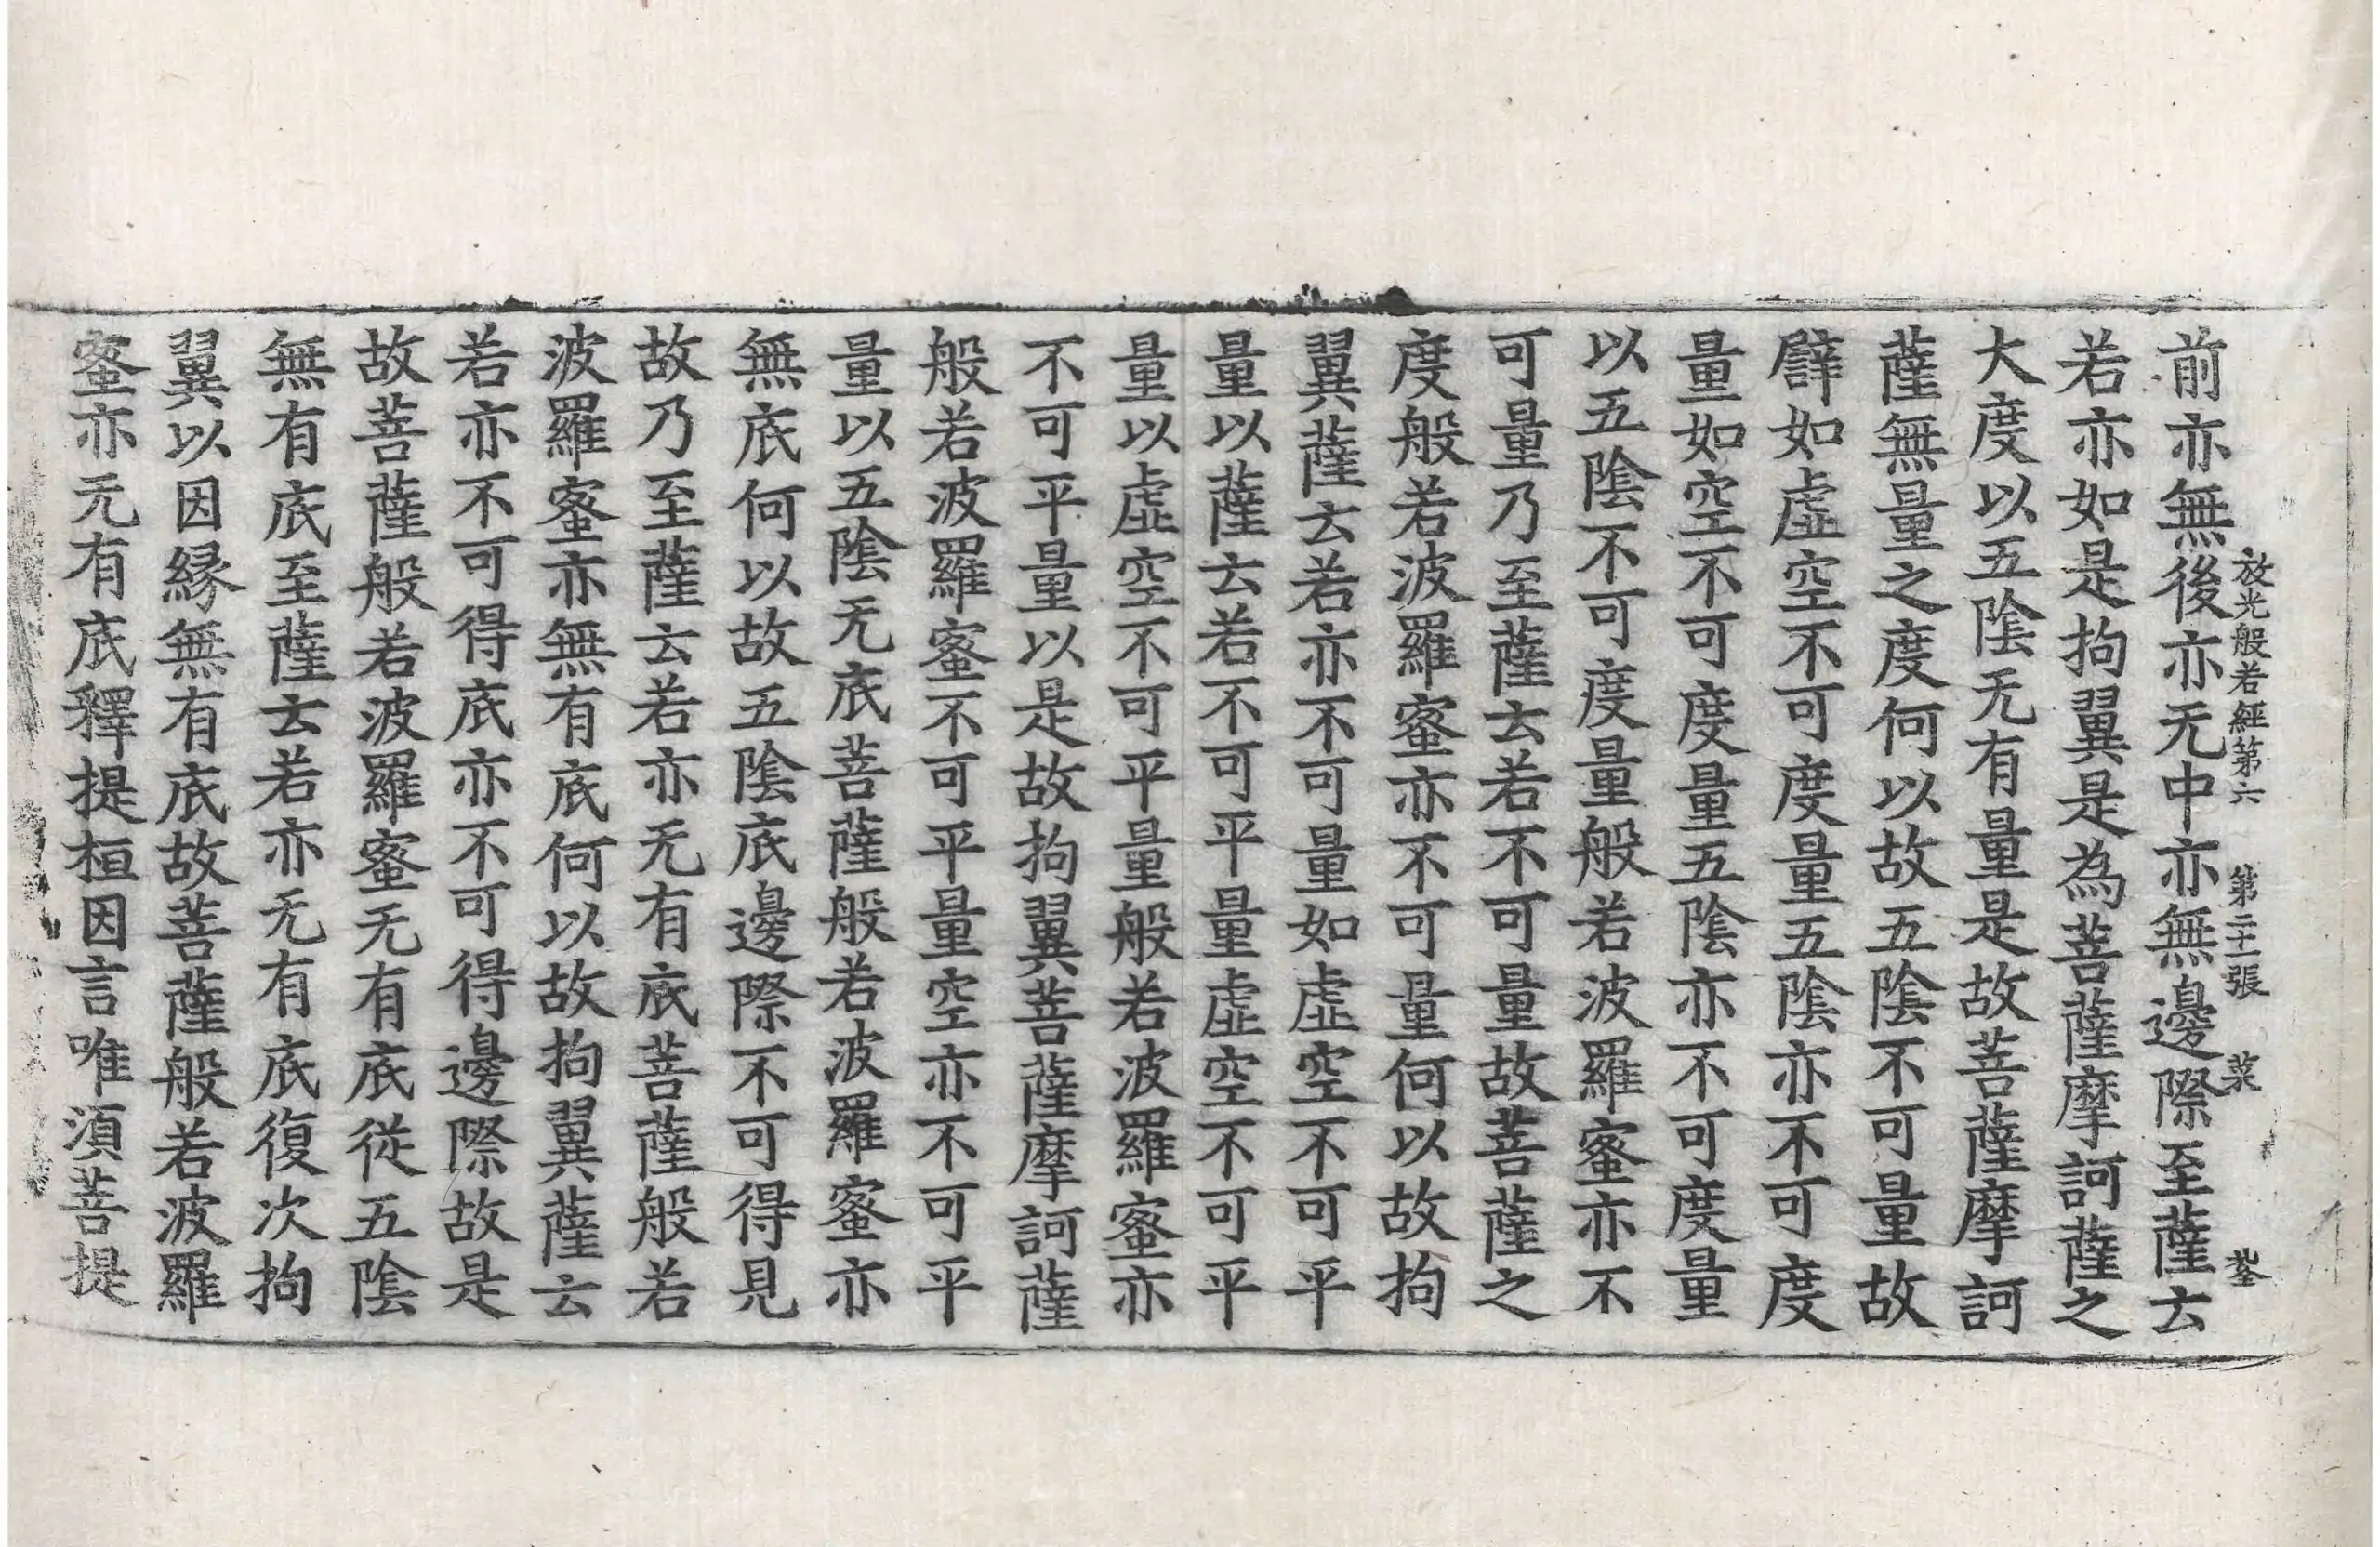 放光般若經第六 第二十一張 菜
前亦無後亦无中亦無邊際至薩云
若亦如是拘翼是為菩薩摩訶薩之
大度以五陰无有量是故菩薩摩訶
薩無量之度何以故五陰不可量故
譬如虛空不可度量五陰亦不可度
量如空不可度量五陰亦不可度量
以五陰不可度量般若波羅蜜亦不
可量乃至薩云若不可量故菩薩之
度般若波羅蜜亦不可量何以故拘
翼薩云若亦不可量如虛空不可平
量以薩云若不可平量虛空不可平
量以虛空不可平量般若波羅蜜亦
不可平量以是故拘翼菩薩摩訶薩
般若波羅蜜不可平量空亦不可平
量以五陰无底菩薩般若波羅蜜亦
無底何以故五陰底邊際不可得見
故乃至薩云若亦无有底菩薩般若
波羅蜜亦無有底何以故拘翼薩云
若亦不可得底亦不可得邊際故是
故菩薩般若波羅蜜无有底從五陰
無有底至薩云若亦无有底復次拘
翼以因縁無有底故菩薩般若波羅
蜜亦元有底釋提桓因言唯須菩提